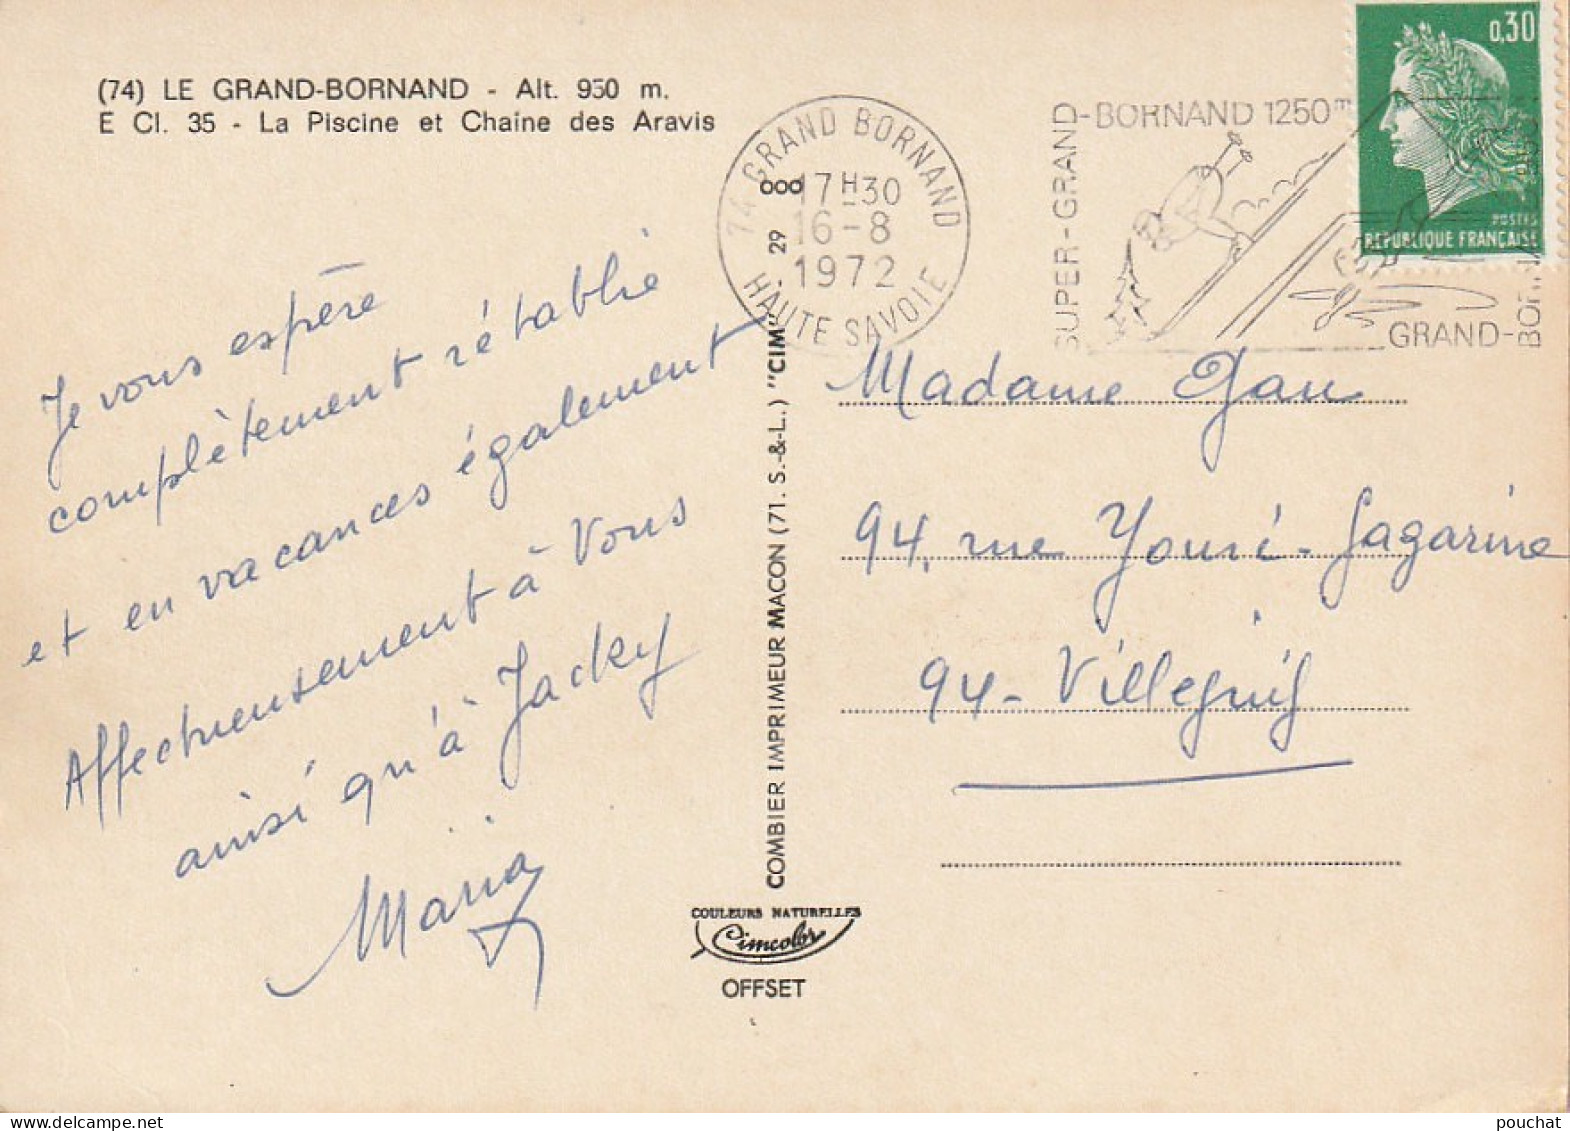 (74) LE GRAND-BORNAND - Alt. 950 m.
E Cl. 35 - La Piscine et Chaîne des Aravis
Je vous espère
complètement rétablie
et en vacances également
Affectueusement à Vous
ainsi qu'à Jacky
Maria
COMBIER IMPRIMEUR MACON (71. S.-&-L.) "CIM" - 29 000
COULEURS NATURELLES
Cimcolor
OFFSET
74 GRAND BORNAND
17H30
16-8
1972
HAUTE SAVOIE
SUPER-GRAND-BORNAND 1250m
GRAND-BORNAND
0,30
POSTES
REPUBLIQUE FRANÇAISE
Madame Gau
94, rue Youri-Gagarine
94- Villejuif
pouchat